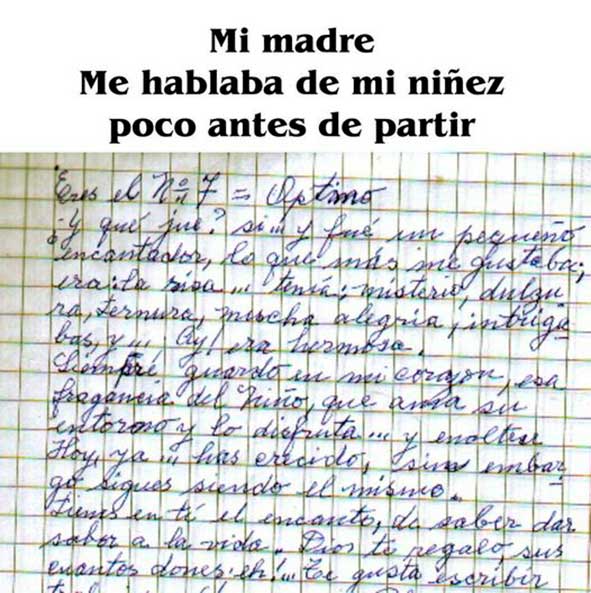 Mi madre
Me hablaba de mi niñez
poco antes de partir
Eres el Nº 7 = Optimo
- Y qué fue? si... y fué un pequeño
encantador, lo que más me gustaba;
era: la risa... tenía; misterio, dulzu
ra, ternura, mucha alegría, intriga
bas, y... Ay! era hermosa.
Siempre guardo en mi corazon, esa
fragancia del Niño, que ama su
entorno y lo disfruta... y enaltese
Hoy, ya... has crecido, sin embar
go sigues siendo el mismo.
Tienes en ti el encanto, de saber dar
sabor a la vida. Dios te regaló sus
cuantos dones. eh!... Te gusta escribir